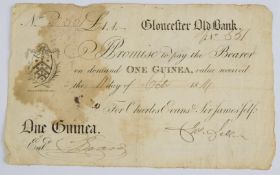 No Gloucester Old Bank.
No 551
I Promise to pay the Bearer
on demand ONE GUINEA, value received
the day of Oct 18
For Charles Evans & Sir James Jelf:
One Guinea.
Entd